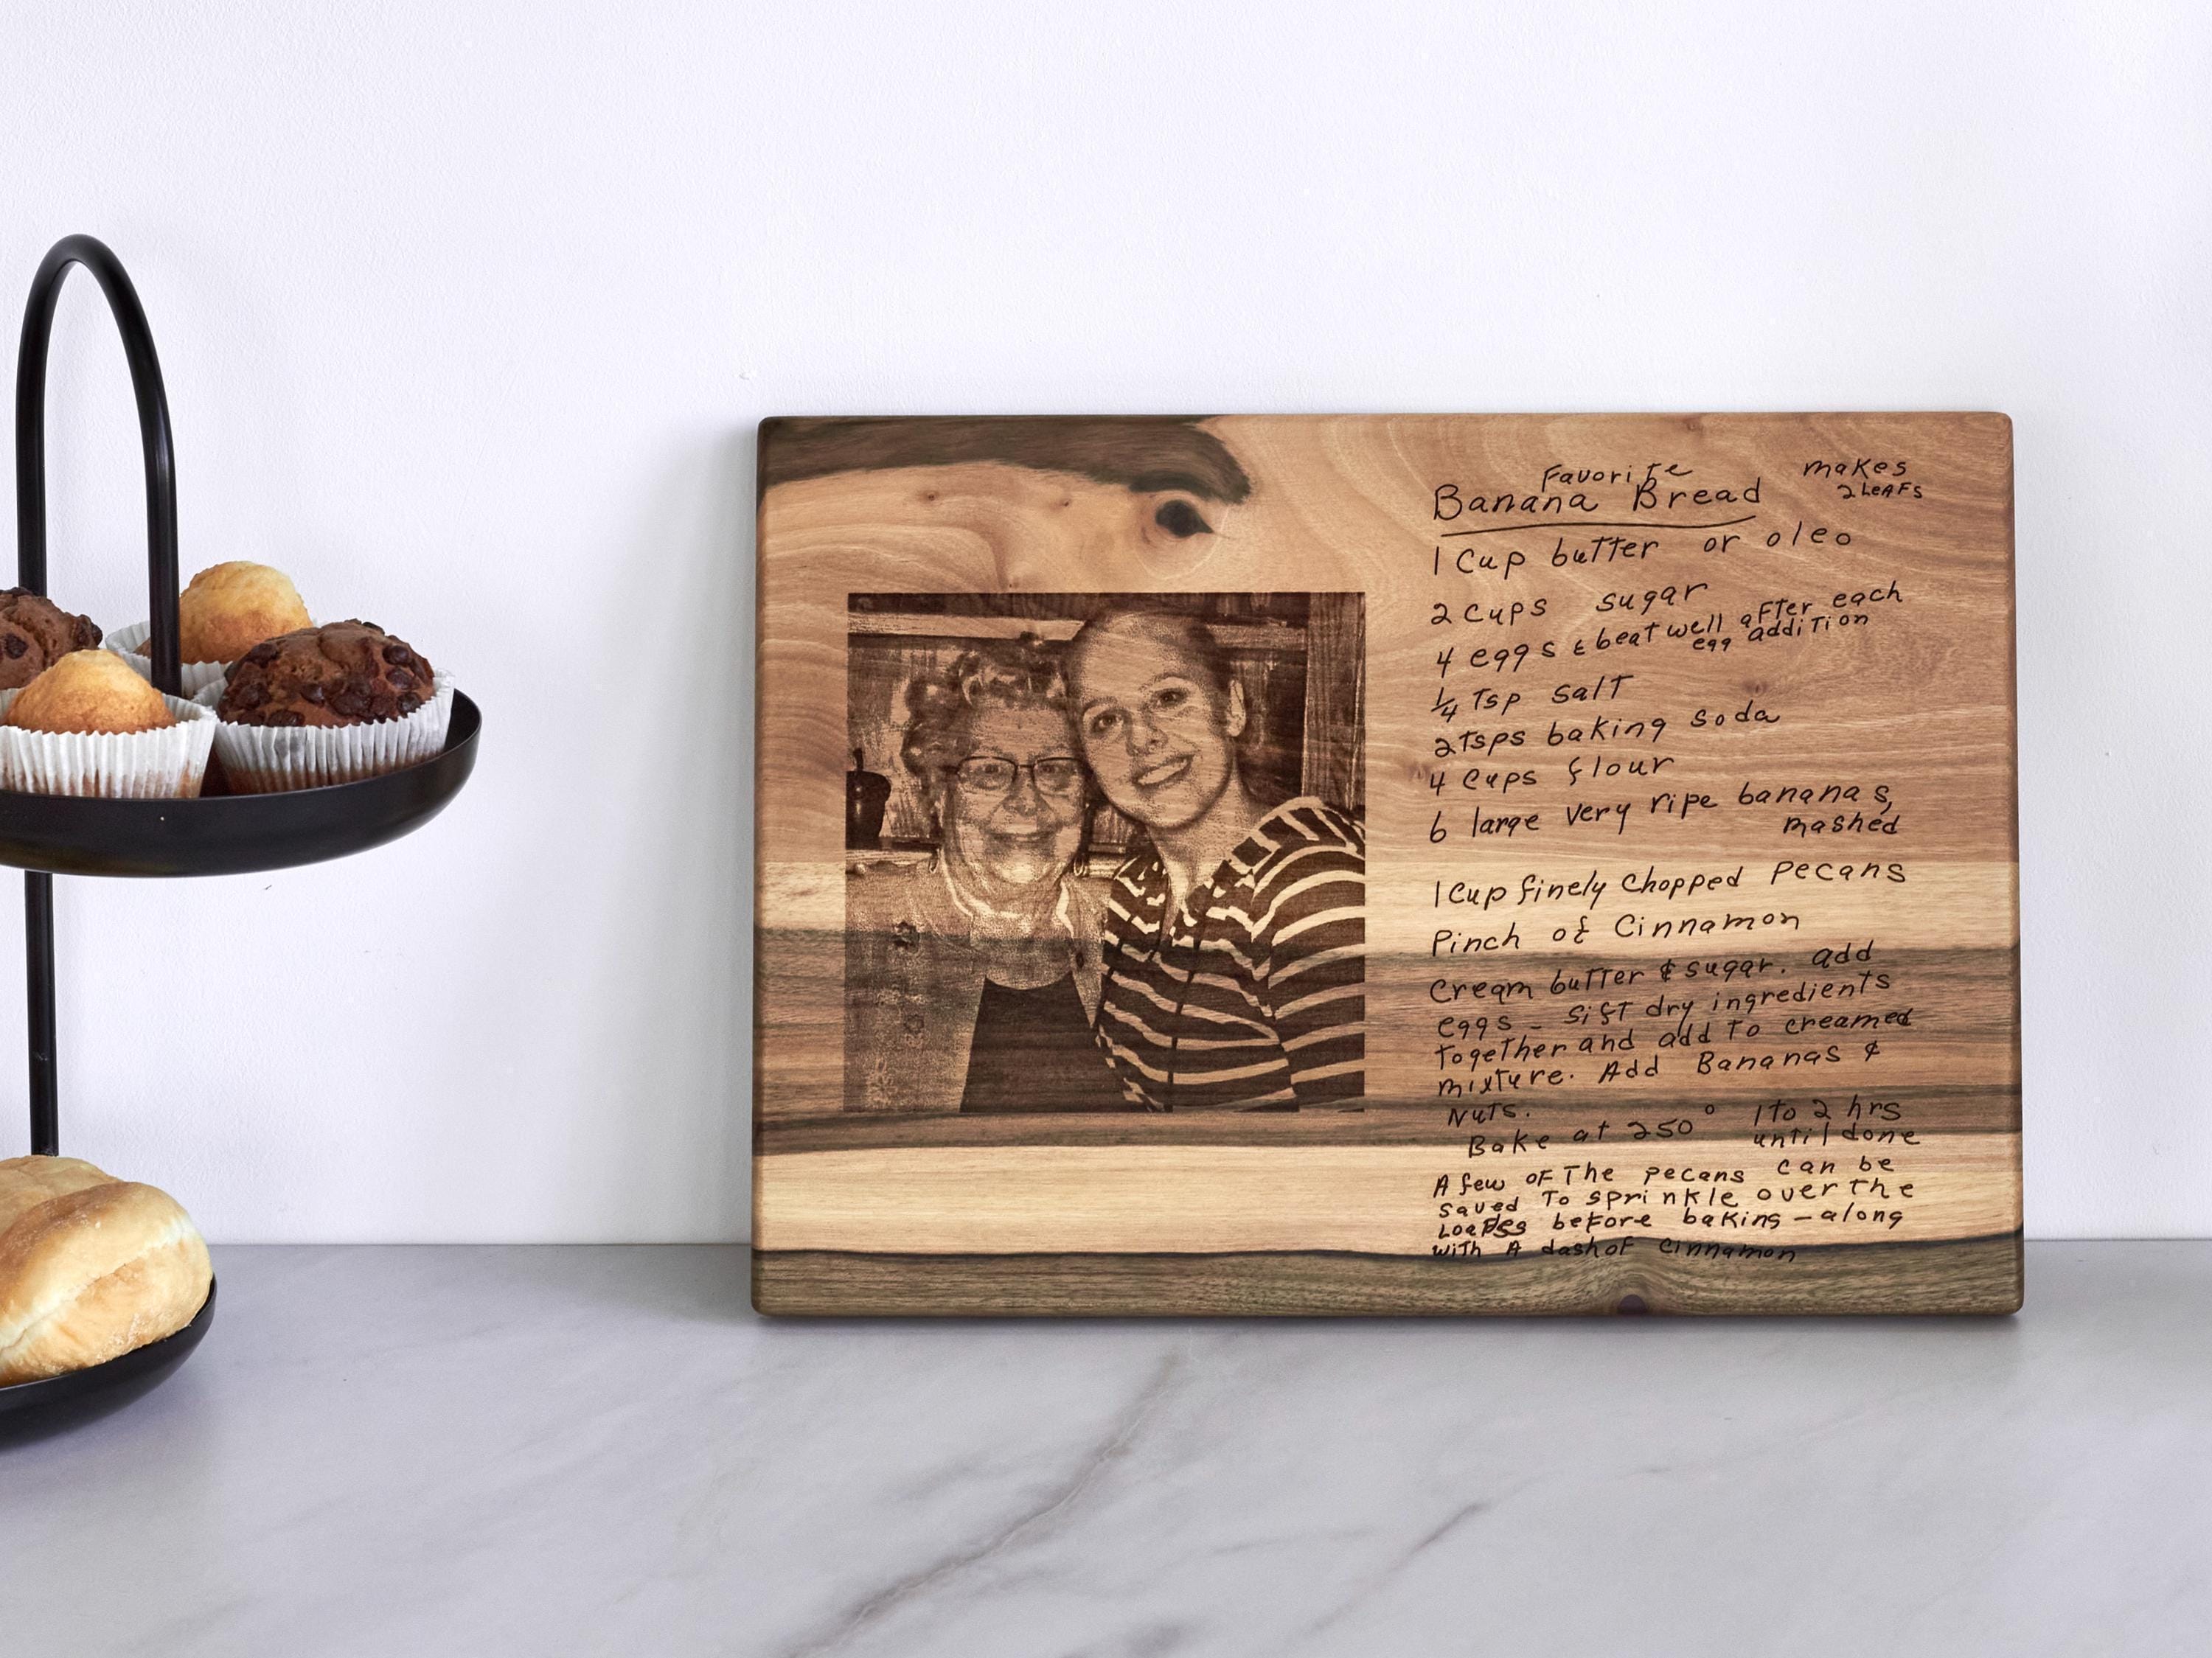 Favorite
Banana Bread
makes
2 LeAFs
1 Cup butter or oleo
2 cups sugar
4 eggs & beat well after each
egg addition
1/4 Tsp salt
2 Tsps baking soda
4 cups flour
6 large very ripe bananas,
mashed
1 Cup finely chopped pecans
Pinch of Cinnamon
Cream butter & sugar. add
eggs - sift dry ingredients
together and add to creamed
mixture. Add Bananas &
Nuts.
Bake at 250° 1 to 2 hrs
until done
A few of The pecans can be
saved To sprinkle over the
before baking - along
with A dash of cinnamon